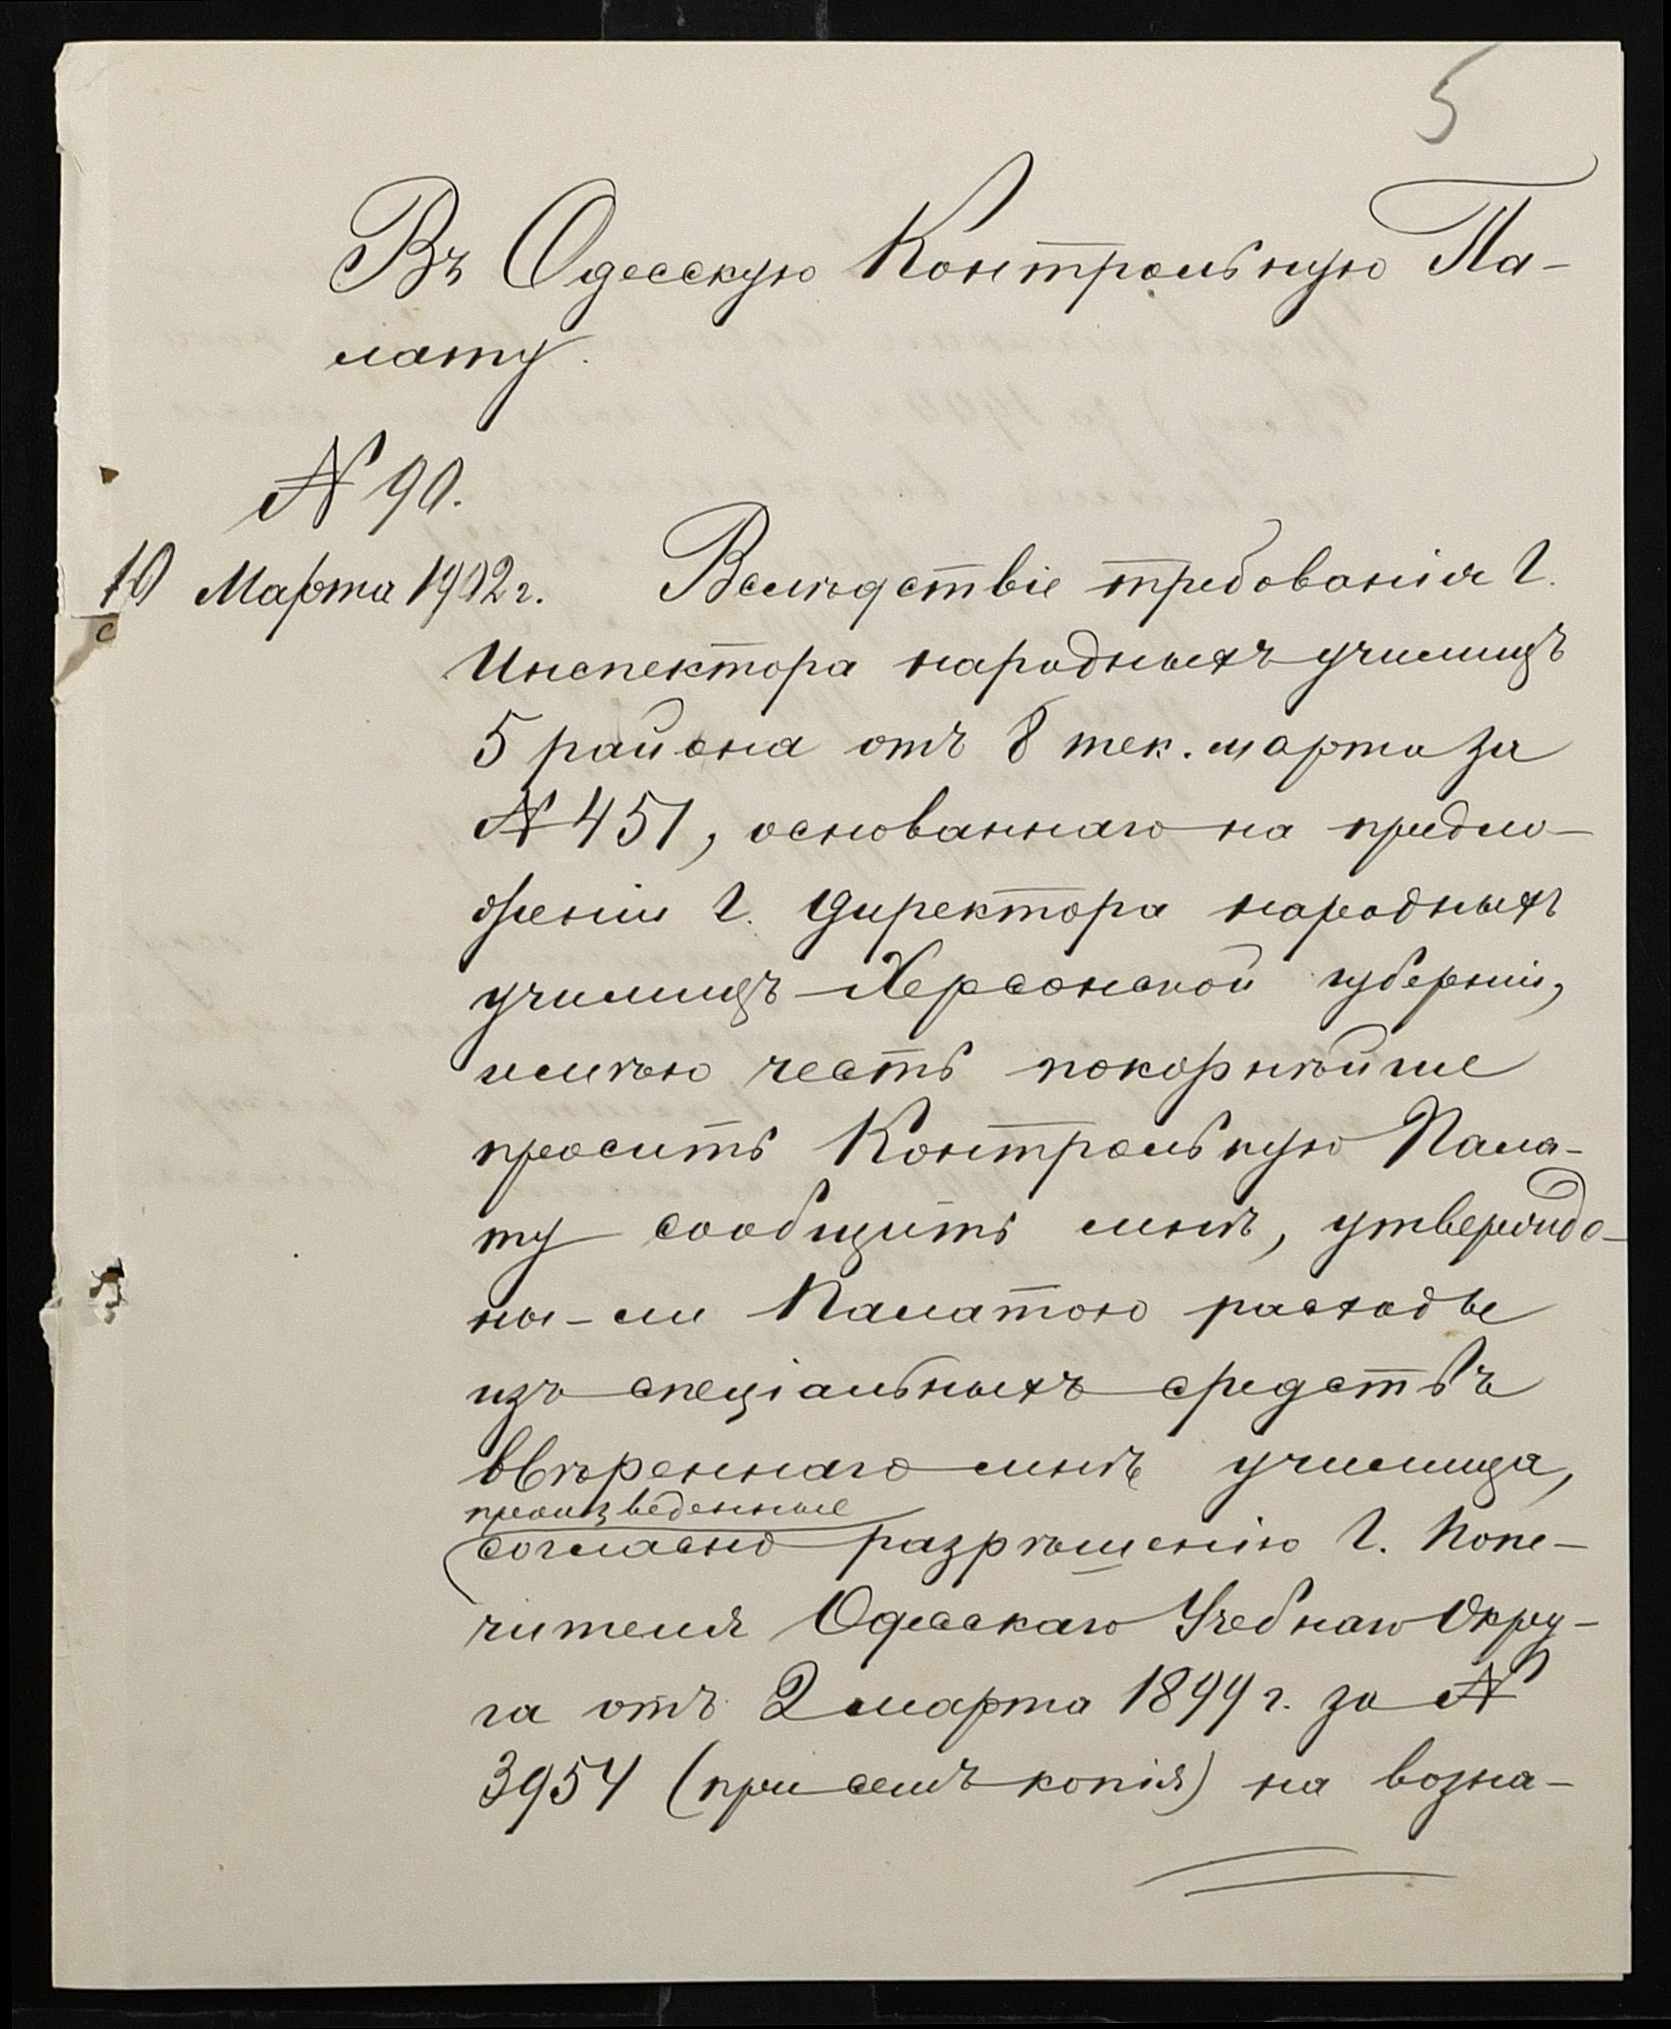 5
Въ Одесскую Контрольную Па-
лату.
№ 90.
10 Марта 1902 г. Вслѣдствіе требованія Г.
Инспектора народныхъ училищъ
5 района отъ 8 тек. марта за
№ 451, основаннаго на предло-
женіи Г. Директора народныхъ
училищъ Херсонской губерніи,
имѣю честь покорнѣйше
просить Контрольную Пала-
ту сообщить мнѣ, утвержде-
ны-ли Палатою расходы
изъ спеціальныхъ средствъ
ввѣреннаго мнѣ училища,
произведенные
согласно разрѣшенію Г. Попе-
чителя Одесскаго Учебнаго Окру-
га отъ 2 марта 1899 г. за №
3954 (при семъ копія) на возна-